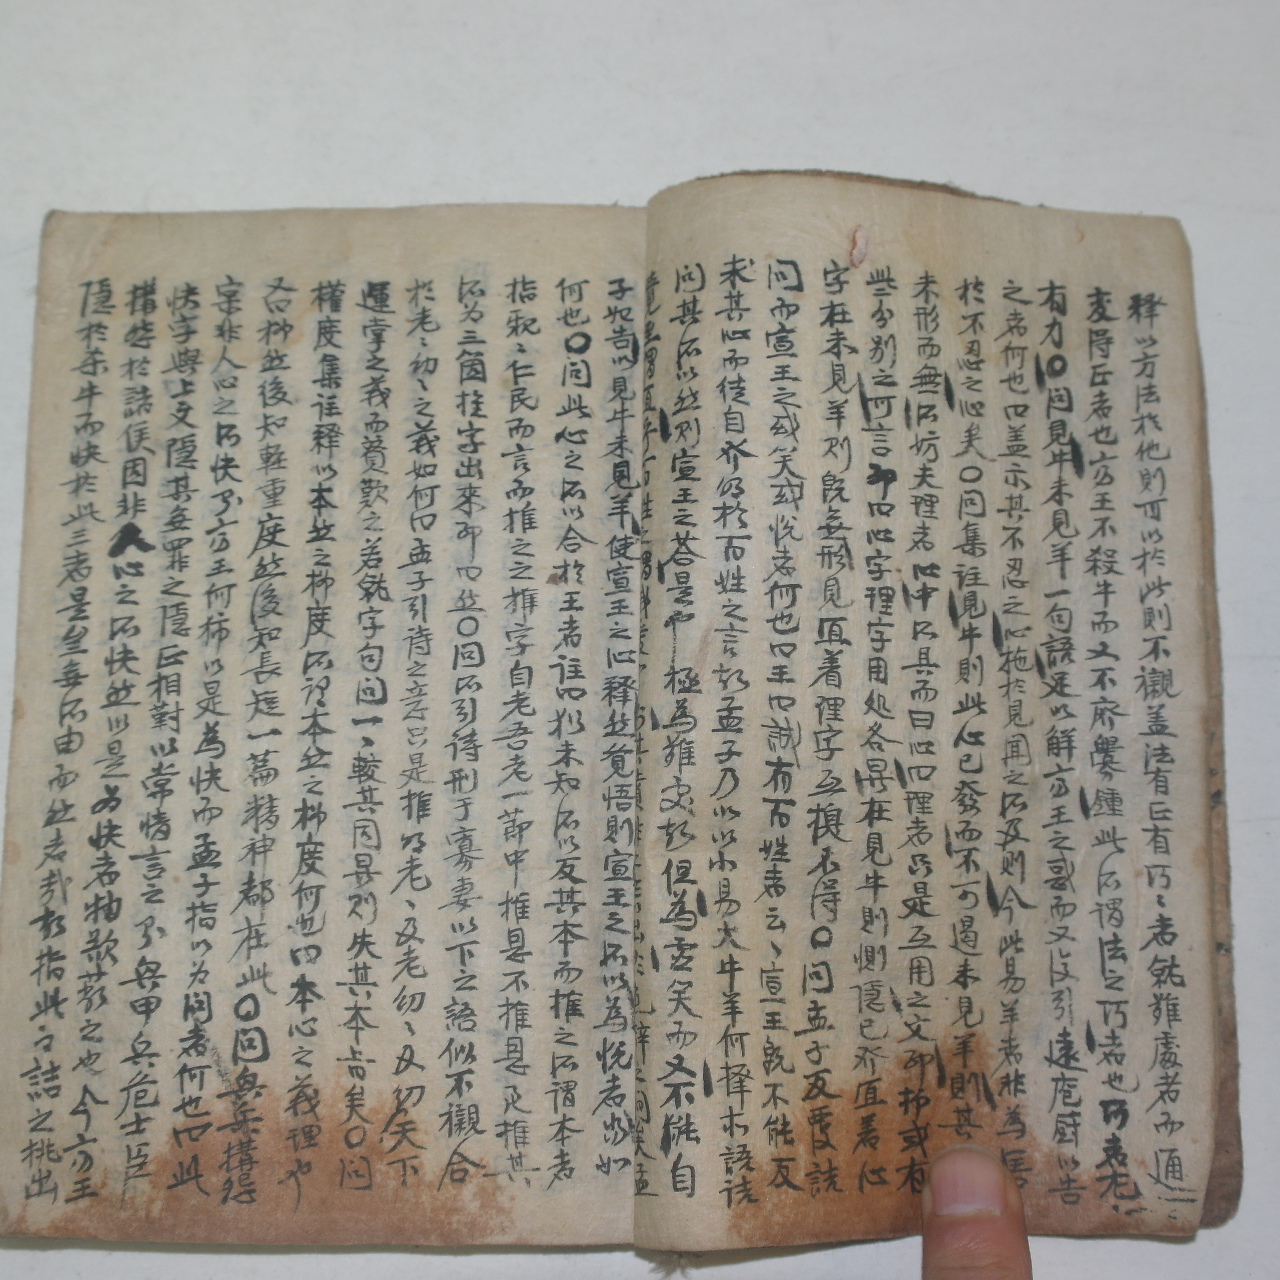 釋以方法於他則可以於此則不襯盖法有正有巧〻者就難處者而通
変得正者也方王不殺牛而又不廢釁鍾此所謂法之巧者也巧者
有力〇問見牛未見羊一句語足以解方王之惑而又引遠庖厨以告
之者何也曰盖示其不忍之心施於見聞之所及則今此易羊者非為害
於不忍之心矣〇問集註見牛則此心已發而不可遏未見羊則其
未形而無所妨夫理者心中所具而曰心曰理者只是互用之文耶抑或有
此分别之可言耶曰心字理字用処各異在見牛則惻隠已發直着心
字在未見羊則旣無形見直着理字互換不得〇問孟子反覆詰
問而宣王之或笑或悅者何也曰王曰誠有百姓者云〻宣王旣不能反
求其心而徒自發明於百姓之言故孟子乃以以小易大牛羊何擇木語詰
問其所以然則宣王之荅是也極為難処故但為虛笑而又不能自
子如告以見牛未見羊使宣王之心釋然覚悟則宣王之所以為悅者当如
何也〇問此心之所以合於王者註曰猶未知所以反其本而推之所謂本者
指親〻仁民而言而推之之推字自老吾老一節中推恩不推恩足推其
所为三箇推字出來耶曰然〇問所引詩刑于寡妻以下之語似不襯合
於老〻幼〻之義如何曰孟子引詩之意只是推吾老〻及老幼〻及幼天下
運掌之義而賛歎之若就字句間一〻較其同異則失其本旨矣〇問
權度集註釋以本然之權度所謂本然之權度何也曰本心之義理也
又曰權然後知輕重度然後知長短一篇精神都在此〇問興兵搆怨
宲非人心之所快分方王何㫖以是為快而孟子指以为問者何也曰此
快字與上文隠其無罪之隠正相對以常情言之分興甲兵危士臣
搆怨於諸侯固非人心之所快然以是为快者物欲蔽之也今方王
隠於杀牛而快於此三者是豈無所由而然者㢤故指此而詰之挑出